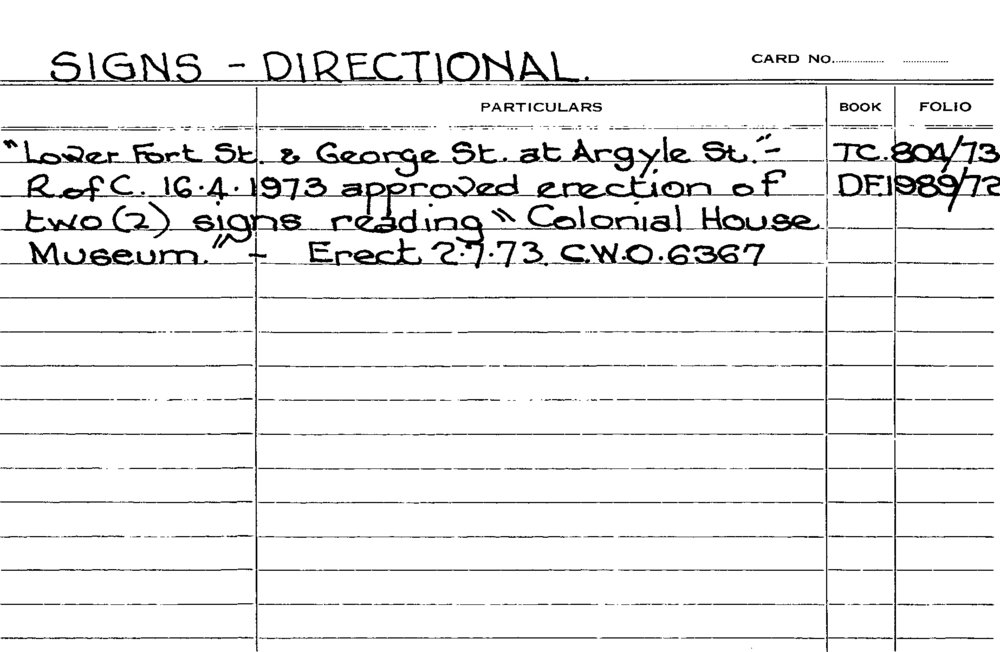 SIGNS - DIRECTIONAL.
CARD No.
PARTICULARS BOOK FOLIO
"Lower Fort St. & George St. at Argyle St."- TC.804/73
R.of C. 16.4.1973 approved erection of DF.1989/72
two (2) signs reading "Colonial House
Museum." - Erect 2.7.73. C.W.O.6367